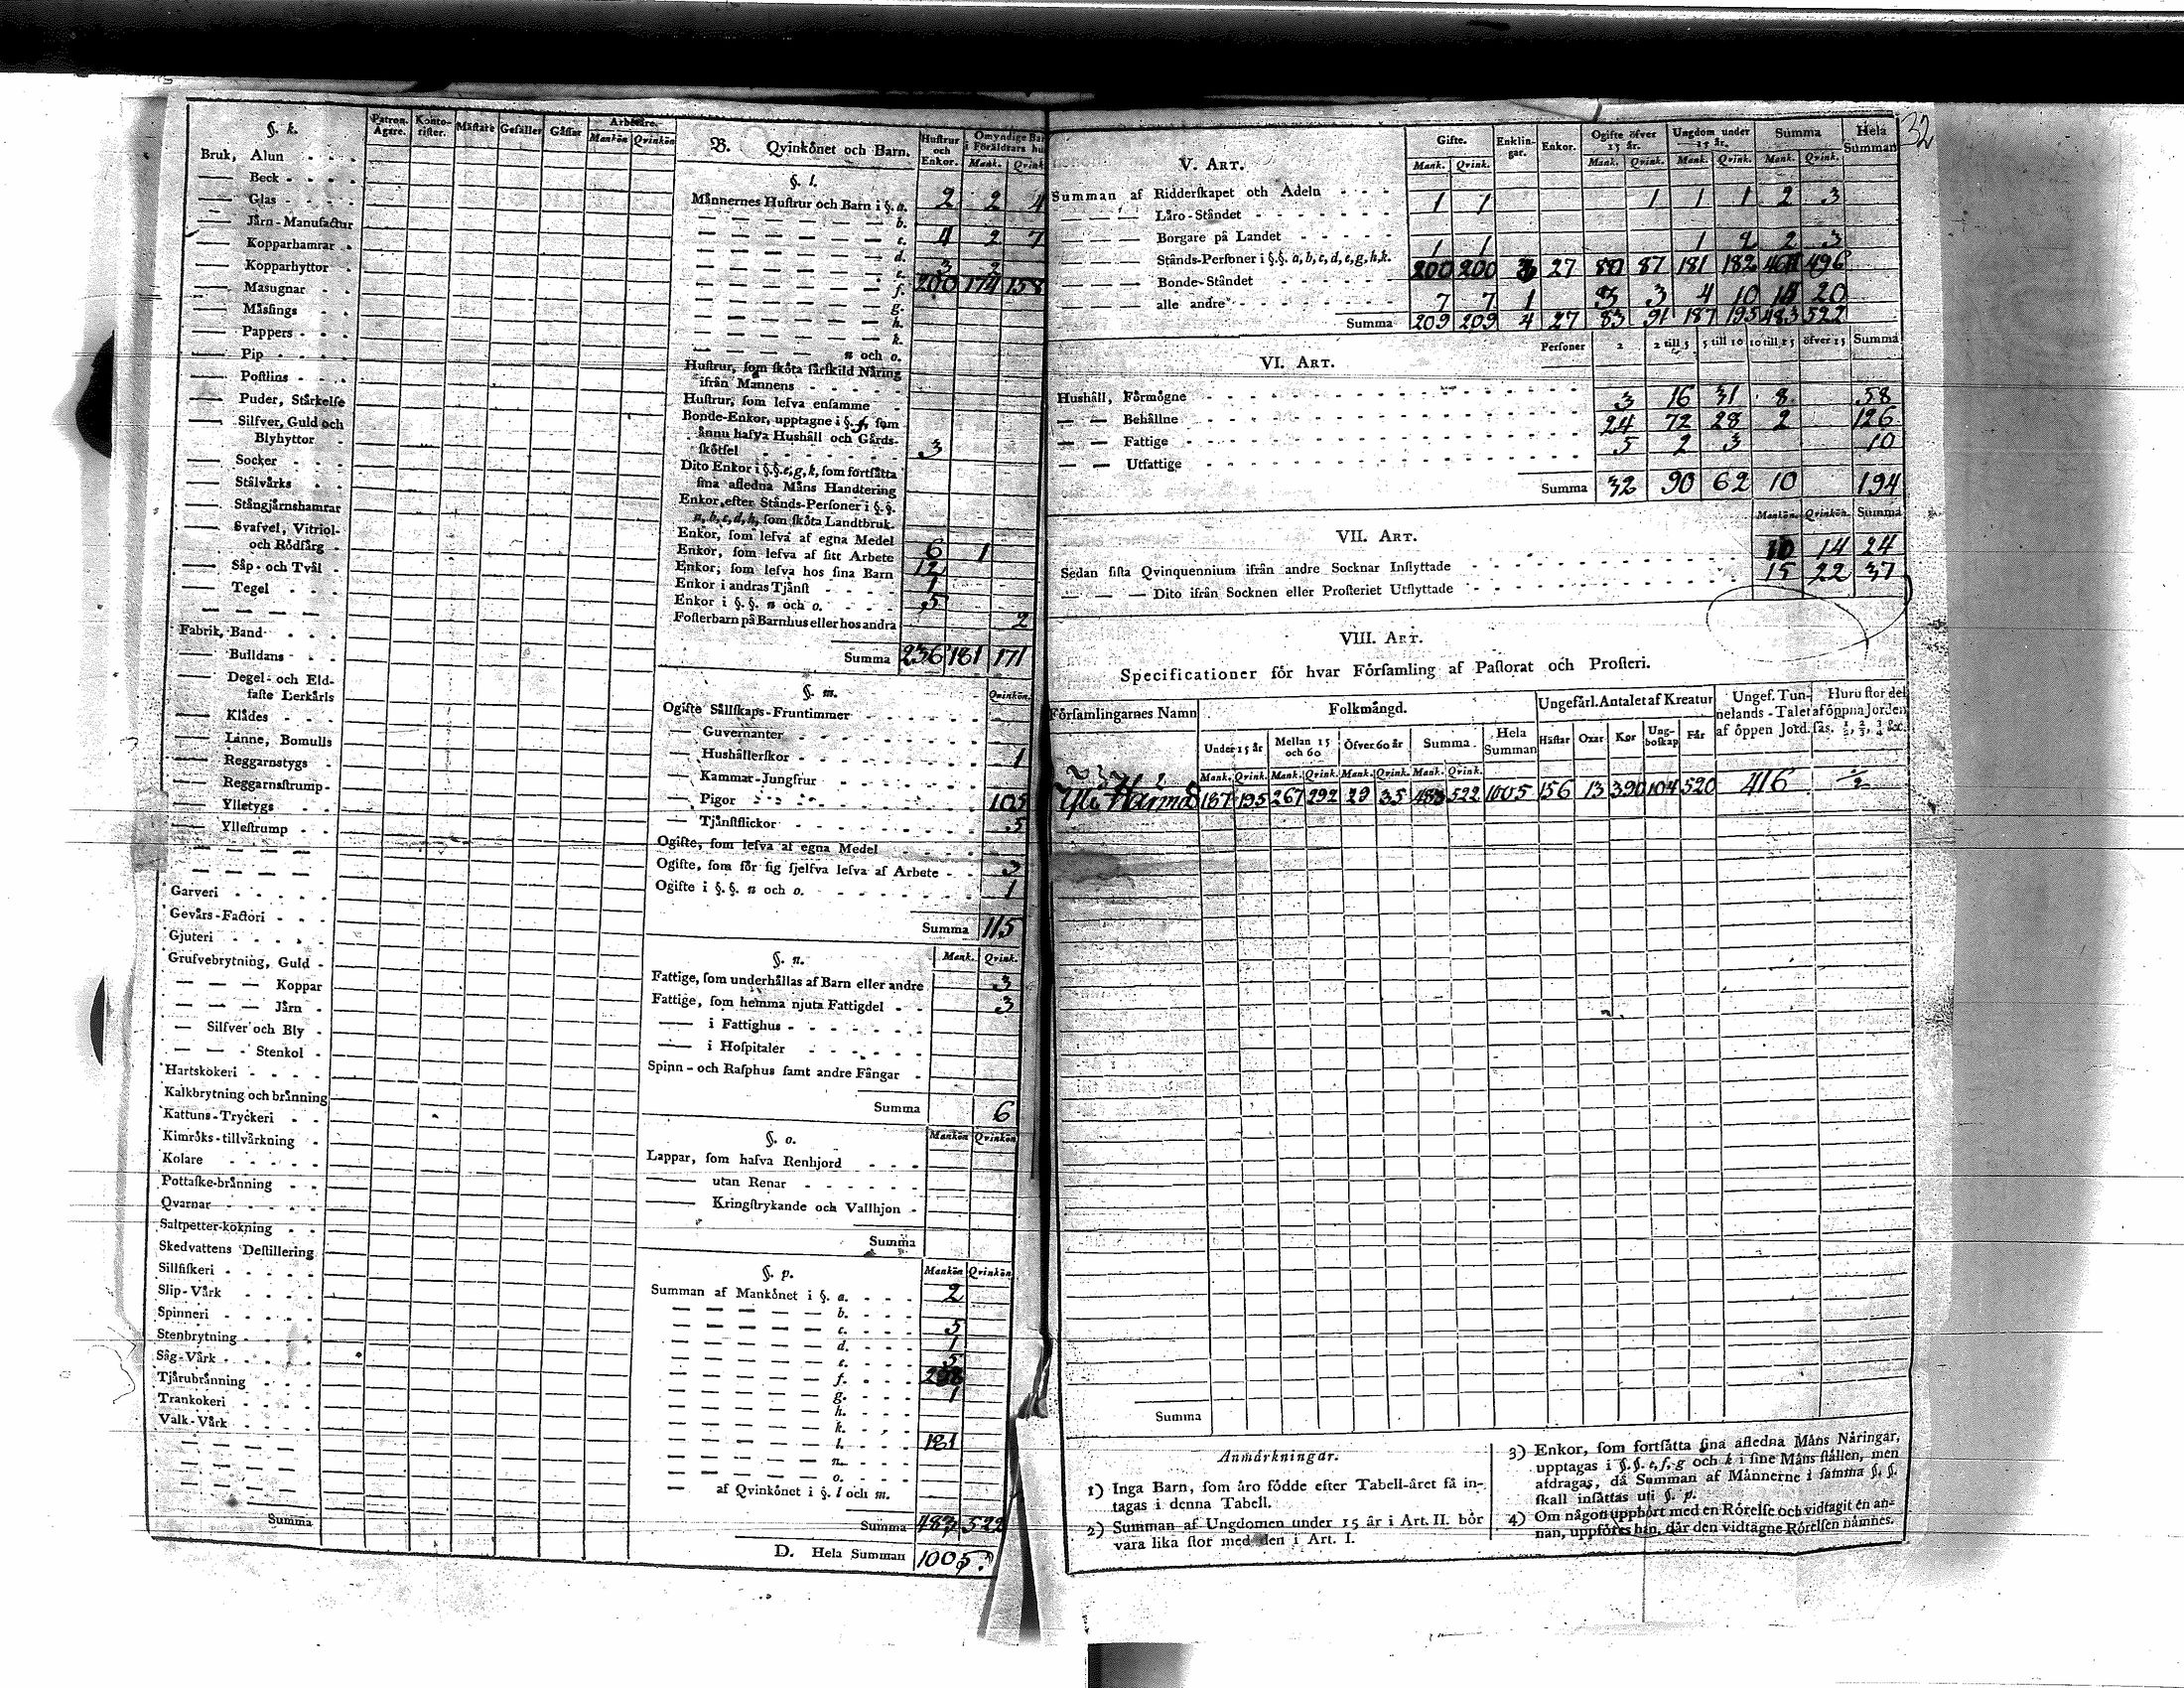 32
§. k.
Patron. Ägare. Konto-rister. Mästare Gesäller Gåssar Arbetare. Mankön Qvinkön
Bruk, Alun
— Beck
— Glas
— Järn-Manufactur
— Kopparhamrar
— Kopparhyttor
— Masugnar
— Mäsings
— Pappers
— Pip
— Postlins
— Puder, Stärkelse
— Silfver, Guld och
Blyhyttor
— Socker
— Stälvärks
— Stångjärnshamrar
— Svafvel, Vitriol-
och Rödfärg
— Såp- och Tvål
— Tegel
— — — —
Fabrik, Band
— Bulldans
— Degel- och Eld-
faste Lerkärls
— Klädes
— Linne, Bomulls
— Reggarnstygs
— Reggarnsstrump
— Ylletygs
— Yllestrump
— — — —
— — — —
Garveri
Gevärs-Factori
Gjuteri
Grufvebrytning, Guld
— — — Koppar
— — — Järn
— Silfver och Bly
— — Stenkol
Hartskokeri
Kalkbrytning och bränning
Kattuns-Tryckeri
Kimröks-tillvärkning
Kolare
Pottaske-bränning
Qvarnar
Saltpetter-kokning
Skedvattens Destillering
Sillfiskeri
Slip-Värk
Spinneri
Stenbrytning
Såg-Värk
Tjärubränning
Trankokeri
Valk-Värk
— — — —
— — — —
— — — —
Summa
B. Qvinkönet och Barn. Hustrur och Enkor. Omyndige Bar i Föräldrars hu Mank. Qvink
§. l.
Männernes Hustrur och Barn i §. a. 2 2 4
— — — — — b.
— — — — — c. 4 2 7
— — — — — d.
— — — — — e. 3 2
— — — — — f. 200 174 158
— — — — — g.
— — — — — h.
— — — — — k.
— — — — n och o.
Hustrur, som sköta särskild Näring
ifrån Mannens
Hustrur, som lefva ensamme
Bonde-Enkor, upptagne i §. f, som
ännu hafva Hushåll och Gårds-
skötsel 3
Dito Enkor i §.§. e, g, k, som fortsätta
sina afledna Mäns Handtering
Enkor efter Stånds-Personer i §.§.
a, b, c, d, h, som sköta Landtbruk
Enkor, som lefva af egna Medel
Enkor, som lefva af sitt Arbete 6 1
Enkor, som lefva hos sina Barn 12
Enkor i andras Tjänst 1
Enkor i §.§. n och o. 5
Fosterbarn på Barnhus eller hos andra 2
Summa 236 181 171
§. m. Qvinkön.
Ogifte Sällskaps-Fruntimmer
— Guvernanter
— Hushållerskor 1
— Kammar-Jungfrur
— Pigor 105
— Tjänstflickor 5
Ogifte, som lefva af egna Medel
Ogifte, som för sig sjelfva lefva af Arbete 3
Ogifte i §.§. n och o. 1
Summa 115
§. n. Mank. Qvink.
Fattige, som underhållas af Barn eller andre 3
Fattige, som hemma njuta Fattigdel 3
— i Fattighus
— i Hospitaler
Spinn- och Rasphus samt andre Fångar
Summa 6
§. o. Mankön Qvinkön
Lappar, som hafva Renhjord
— utan Renar
— Kringstrykande och Vallhjon
Summa
§. p. Mankön Qvinkön
Summan af Mankönet i §. a. 2
— — — — — b.
— — — — — c. 5
— — — — — d. 1
— — — — — e. 5
— — — — — f.
— — — — — g. 1
— — — — — h.
— — — — — k.
— — — — — l. 181
— — — — — n.
— — — — — o.
— af Qvinkönet i §. l och m.
Summa 483 522
D. Hela Summan 1005.
V. ART. Gifte. Mank. Qvink. Enklin-gar. Enkor. Ogifte öfver 15 år. Mank. Qvink. Ungdom under 15 år. Mank. Qvink. Summa Mank. Qvink. Hela Summan
Summan af Ridderskapet och Adeln
— — — Läro-Ståndet 1 1 1 1 1 2 3
— — — Borgare på Landet
— — — Stånds-Personer i §.§. a, b, c, d, e, g, h, k. 1 1 1 2 2 3
— — — Bonde-Ståndet 200 200 3 27 80 87 181 182 496
— — — alle andre 7 7 1 3 3 4 10 20
Summa 209 209 4 27 83 91 187 195 483 522
VI. ART. Personer 2 2 till 5 5 till 10 10 till 15 öfver 15 Summa
Hushåll, Förmögne 3 16 31 8 58
— — Behållne 24 72 28 2 126
— — Fattige 5 2 3 10
— — Utfattige
Summa 32 90 62 10 194
VII. ART. Mankön. Qvinkön. Summa
Sedan sista Qvinquennium ifrån andre Socknar Inflyttade 10 14 24
— — — Dito ifrån Socknen eller Prosteriet Utflyttade 15 22 37
VIII. ART.
Specificationer för hvar Församling af Pastorat och Prosteri.
Församlingarnes Namn Folkmängd. Ungefärl. Antalet af Kreatur Ungef. Tun-nelands-Talet af öppen Jord. Huru stor del af öppna Jorden sås. ½, ⅔, ¾ &c.
Under 15 år Mellan 15 och 60 Öfver 60 år Summa Hela Summan Hästar Oxar Kor Ung-boskap Får
Mank. Qvink. Mank. Qvink. Mank. Qvink. Mank. Qvink.
187 195 267 292 29 35 483 522 1005 156 13 390 104 520 416 ½
Summa
Anmärkningar.
1) Inga Barn, som äro födde efter Tabell-året få in-
tagas i denna Tabell.
2) Summan af Ungdomen under 15 år i Art. II. bör
vara lika stor med den i Art. I.
3) Enkor, som fortsätta sina afledna Mäns Näringar,
upptagas i §.§. e, f, g och k i sine Mäns ställen, men
afdragas, då Summan af Männerne i samma §. §.
skall insättas uti §. p.
4) Om någon upphört med en Rörelse och vidtagit en an-
nan, uppföres han, där den vidtagne Rörelsen nämnes.